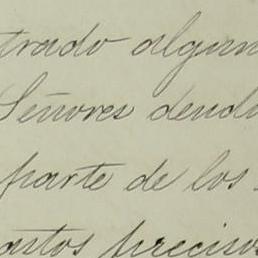 trado algun
Señores deud
parte de los
astos preciso